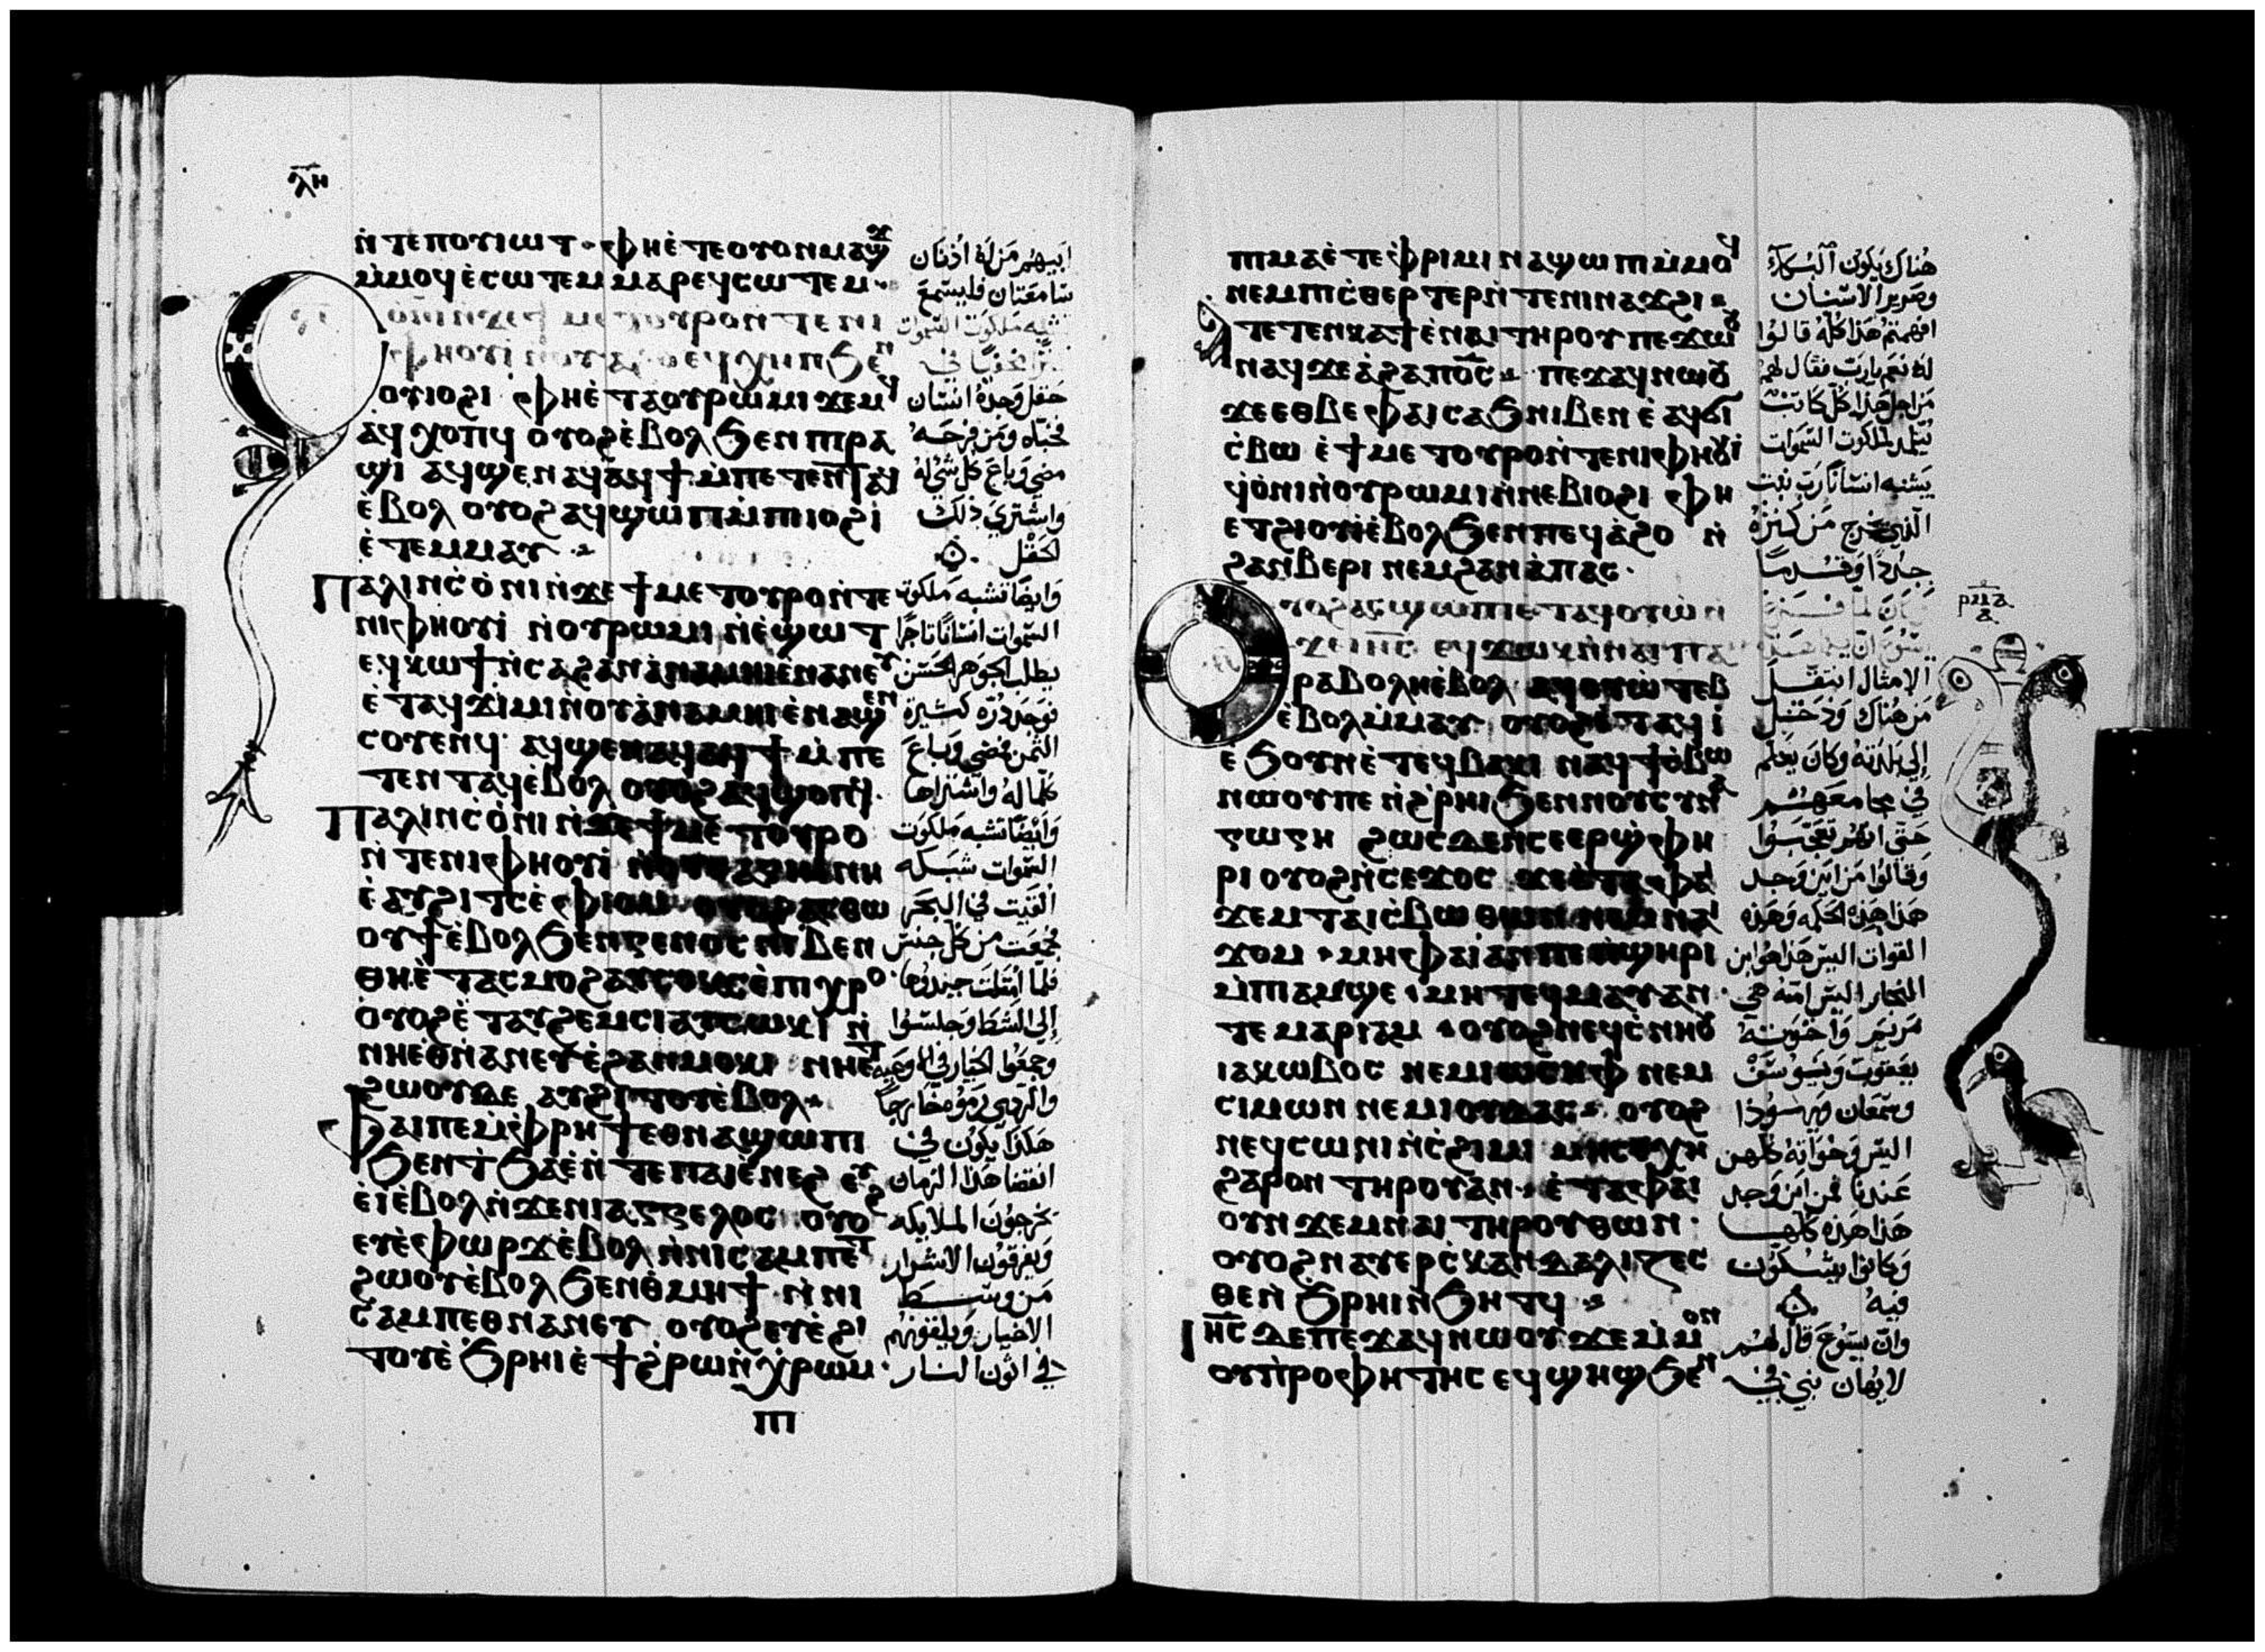 ⲗⲏ
ⲛ̇ⲧⲉⲡⲟⲩⲓⲱⲧ · ⲫⲏⲉ̇ⲧⲉⲟⲩⲟⲛⲙⲁϣϫ
ⲙ̇ⲙⲟϥⲉ̇ⲥⲱⲧⲉⲙ ⲙⲁⲣⲉϥⲥⲱⲧⲉⲙ ·
ⲟ̇ⲛⲓⲛ̇ϫⲉϯ ⲙⲉⲧⲟⲩⲣⲟⲛ̇ⲧⲉⲛⲓ
ⲫⲏⲟⲩⲓ̇ ⲛ̇ⲟⲩⲁ̇ϩⲟ ⲉϥⲭⲏⲡϧⲉⲛ
ⲟⲩⲓⲟϩⲓ ⲫⲏⲉ̇ⲧⲁⲟⲩⲣⲱⲙⲓ ϫⲉⲙϥ
ⲁϥⲭⲟⲡϥ ⲟⲩⲟϩⲉ̇ⲃⲟⲗϧⲉⲛⲡⲣⲁ
ϣⲓ ⲁϥϣⲉⲛⲁϥⲁϥϯⲙ̇ⲡⲉⲧⲉⲛⲧⲁϥ
ⲉ̇ⲃⲟⲗ ⲟⲩⲟϩⲁϥϣⲱⲡⲙ̇ⲡⲓⲓⲟϩⲓ
ⲉ̇ⲧⲉⲙⲙⲁⲩ
ⲡⲁⲗⲓⲛⲥ̇ⲟ̇ⲛⲓⲛ̇ϫⲉϯⲙⲉⲧⲟⲩⲣⲟⲛ̇ⲧⲉ
ⲛⲓⲫⲏⲟⲩⲓ̇ ⲛ̇ⲟⲩⲣⲱⲙⲓ ⲛ̇ⲉ̇ϣⲱⲧ
ⲉϥⲕⲱϯⲛ̇ⲥⲁϩⲁⲛⲁ̇ⲛⲁⲙⲏⲓⲉ̇ⲛⲁⲛⲉⲩ
ⲉ̇ⲧⲁϥϫⲓⲙⲓⲛ̇ⲟⲩⲁ̇ⲛⲁⲙⲏⲓⲉ̇ⲛⲁϣⲉⲛ
ⲥⲟⲩⲉⲛϥ ⲁϥϣⲉⲛⲁϥⲁϥϯⲙ̇ⲡⲉ
ⲧⲉⲛⲧⲁϥⲉ̇ⲃⲟⲗ ⲟⲩⲟϩⲁϥϣⲟⲡϥ ·
ⲡⲁⲗⲓⲛⲥ̇ⲟ̇ⲛⲓⲛ̇ϫⲉϯⲙⲉⲧⲟⲩⲣⲟ
ⲛ̇ⲧⲉⲛⲓⲫⲏⲟⲩⲓ̇
ⲉ̇ⲁⲩϩⲓⲧⲥⲉ̇ⲫⲓⲟⲙ ⲟⲩⲟϩⲁⲥⲑⲱ
ⲟⲩϯⲉ̇ⲃⲟⲗϧⲉⲛⲅⲉⲛⲟⲥⲛⲓⲃⲉⲛ
ⲑⲏⲉ̇ⲧⲁⲥⲙⲟϩⲁⲩⲥⲟⲕⲥⲉ̇ⲡⲓⲭⲣⲟ ·
ⲟⲩⲟϩⲉ̇ⲧⲁⲩϩⲉⲙⲥⲓⲁⲩⲥⲱⲕⲓ ⲛ̇
ⲛⲏⲉⲑⲛⲁⲛⲉⲩⲉ̇ϩⲁⲛⲙⲟⲕⲓ ⲛⲏⲉⲧ
ϩⲱⲟⲩⲇⲉ ⲁⲩϩⲓⲧⲟⲩⲉ̇ⲃⲟⲗ
ⲫⲁⲓⲡⲉⲙ̇ⲫⲣⲏϯⲉⲑⲛⲁϣⲱⲡⲓ
ϧⲉⲛϯϧⲁⲉ̇ⲛ̇ⲧⲉⲡⲁⲓⲉ̇ⲛⲉϩ ⲉⲩ
ⲉ̇ⲓ̇ⲉ̇ⲃⲟⲗⲛ̇ϫⲉⲛⲓⲁⲅⲅⲉⲗⲟⲥ ⲟⲩⲟϩ
ⲉⲩⲉ̇ⲫⲱⲣϫⲉ̇ⲃⲟⲗ ⲛ̇ⲛⲓⲥⲁⲙⲡⲉⲧ
ϩⲱⲟⲩⲉ̇ⲃⲟⲗϧⲉⲛⲑⲙⲏϯ ⲛ̇ⲛⲓ
ⲥⲁⲙⲡⲉⲑⲛⲁⲛⲉⲩ ⲟⲩⲟϩⲉⲩⲉ̇ϩⲓ
ⲧⲟⲩⲉ̇ϧⲣⲏⲓⲉ̇ϯϩⲣⲱⲛ̇ⲭ̇ⲣⲱⲙ ·
ⲡⲓ
ابيهم من له اذنان
سامعتان فليسمع
تشبه ملكوت السموات
كنزا مخفيا في
حقل وجده انسان
فخباه ومن فرحه
مضي وباع كل شي له
واشتري ذلك
الحقل
وايضا تشبه ملكوت
السموات انسانا تاجرا
يطلب الجوهر الحسن
فوجد درة كثيرة
الثمن فمضي وباع
كلما له واشتراها
وايضا تشبه ملكوت
السموات شبكه
القيت في البحر
فجمعت من كل جنس
فلما امتلت جبدوها
الي الشط وجلسوا
وجمعوا الخيار في اوعيه
والردي رموه خارجا
هكذا يكون في
انقضا هذا الزمان
تخرجون الملايكه
ويفرقون الاشرار
من وسط
الاخيار ويلقونهم
في اتون النار
ⲡⲓⲙⲁⲉ̇ⲧⲉⲫ̇ⲣⲓⲙⲓ ⲛⲁϣⲱⲡⲓⲙ̇ⲙⲟϥ
ⲛⲉⲙⲡⲓⲥ̇ⲑⲉⲣⲧⲉⲣⲛ̇ⲧⲉⲛⲓⲛⲁϫϩⲓ
ⲁⲧⲉⲧⲉⲛⲕⲁϯⲉ̇ⲛⲁⲓⲧⲏⲣⲟⲩ ⲡⲉϫⲱⲟⲩ
ⲛⲁϥϫⲉⲁ̇ϩⲁⲡⲟ̅ⲥ̅ ⲡⲉϫⲁϥⲛⲱⲟⲩ
ϫⲉⲉⲑⲃⲉⲫⲁⲓⲥⲁϧⲛⲓⲃⲉⲛ ⲉ̇ⲁϥϭⲓ
ⲥ̇ⲃⲱ ⲉ̇ϯⲙⲉⲧⲟⲩⲣⲟⲛ̇ⲧⲉⲛⲓⲫⲏⲟⲩⲓ̇
ϥⲟ̇ⲛⲓⲛ̇ⲟⲩⲣⲱⲙⲓⲛ̇ⲛⲉⲃⲓⲟϩⲓ ⲫⲏ
ⲉⲧϩⲓⲟⲩⲓ̇ⲉ̇ⲃⲟⲗϧⲉⲛⲡⲉϥⲁ̇ϩⲟ ⲛ̇
ϩⲁⲛⲃⲉⲣⲓ ⲛⲉⲙϩⲁⲛⲁ̇ⲡⲁⲥ ·
ⲟⲩⲟϩⲁⲥϣⲱⲡⲓⲉ̇ⲧⲁϥⲟⲩⲱ̇ ⲛ̇
ϫⲉⲓⲏ̅ⲥ̅ ⲉϥϫⲱⲕⲛ̇ⲛⲁⲓⲡⲁ
ⲣⲁⲃⲟⲗⲏⲉ̇ⲃⲟⲗ ⲁϥⲟⲩⲱ̇ⲧⲉⲃ
ⲉ̇ⲃⲟⲗⲙ̇ⲙⲁⲩ ⲟⲩⲟϩⲉ̇ⲧⲁϥⲓ̇
ⲉ̇ϧⲟⲩⲛⲉ̇ⲧⲉϥⲃⲁⲕⲓ ⲛⲁϥϯⲥ̇ⲃⲱ
ⲛⲱⲟⲩⲡⲉ ⲛ̇ϩ̇ⲣⲏⲓϧⲉⲛⲛⲟⲩⲥⲩⲛⲁ
ⲅⲱⲅⲏ ϩⲱⲥⲇⲉⲛ̇ⲥⲉⲉⲣϣ̇ⲫⲏ
ⲣⲓ ⲟⲩⲟϩⲛ̇ⲥⲉϫⲟⲥ ϫⲉⲉ̇ⲧⲁⲫⲁⲓ
ϫⲉⲙⲧⲁⲓⲥ̇ⲃⲱ ⲑⲱⲛ ⲛⲉⲙⲛⲁⲓ
ϫⲟⲙ · ⲙⲏⲫⲁⲓⲁⲛⲡⲉⲡ̇ϣⲏⲣⲓ
ⲙ̇ⲡⲓⲁⲙϣⲉ · ⲙⲏⲧⲉϥⲙⲁⲩⲁⲛ ·
ⲧⲉ ⲙⲁⲣⲓⲁⲙ · ⲟⲩⲟϩⲛⲉϥⲥ̇ⲛⲏⲟⲩ
ⲓⲁⲕⲱⲃⲟⲥ ⲛⲉⲙⲓⲱⲥⲏⲫ ⲛⲉⲙ
ⲥⲓⲙⲱⲛ ⲛⲉⲙⲓⲟⲩⲇⲁⲥ ⲟⲩⲟϩ
ⲛⲉϥⲥⲱⲛⲓⲛ̇ⲥ̇ϩⲓⲙⲓ ⲙⲏⲥⲉⲭⲏ
ϩⲁⲣⲟⲛ ⲧⲏⲣⲟⲩⲁⲛ · ⲉ̇ⲧⲁⲫⲁⲓ
ⲟⲩⲛ ϫⲉⲙⲛⲁⲓ ⲧⲏⲣⲟⲩⲑⲱⲛ ·
ⲟⲩⲟϩⲛⲁⲩⲉⲣⲥ̇ⲕⲁⲛⲇⲁⲗⲓⲍⲉⲥ
ⲑⲉⲛ̇ϧⲣⲏⲓⲛ̇ϧⲏⲧϥ
ⲓⲏ̅ⲥ̅ ⲇⲉⲡⲉϫⲁϥⲛⲱⲟⲩ ϫⲉⲙ̇ⲙⲟⲛ
ⲟⲩⲡ̇ⲣⲟⲫⲏⲧⲏⲥ ⲉϥϣⲏϣϧⲉⲛ
هناك يكون البكا
وصرير الاسنان
افهمتم هذا كله قالوا
له نعم يارب فقال لهم
من اجل هذا كل كاتب
يتلمذ لملكوت السموات
يشبه انسانا رب بيت
الذي يخرج من كنزه
جددا وقدما
وكان لما
يسوع
الامثال انتقل
من هناك ودخل
الي بلدته وكان يعلم
في مجامعهم
حتي انهم تعجبوا
وقالوا من اين وجد
هذا هذه الحكمه وهذه
القوات اليس هذا هو ابن
النجار اليس امه هي
مريم واخوته
يعقوب ويوسف
وسمعان ويهودا
اليس وخواته كلهن
عندنا فمن اين وجد
هذا هذه كلها
وكانوا يشكون
فيه
وان يسوع قال لهم
لا يهان نبي في
ⲣⲙⲁ
ⲁ